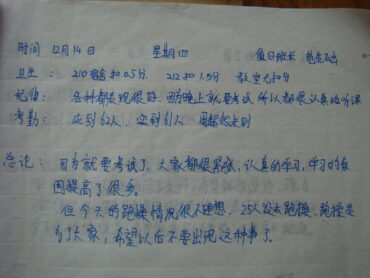 时间 12月14日 星期四 值日班长
卫生: 210宿舍扣0.5分. 212扣1.5分 教室无扣分
纪律: 各科都表现很好. 因为晚上就要考试 所以都很认真地听课
考勤: 应到62人, 实到61人 未到
总论: 因为就要考试了, 大家都很紧张, 认真的学习, 学习的氛
围提高了很多.
但今天的跑操情况很不理想, 25人没去跑操, 跑操是
为了大家, 希望以后不要出现这种事了.